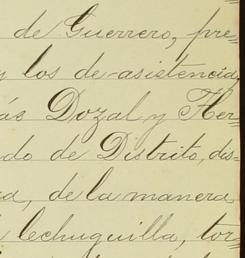 de Guerrero, pre-
y los de asistencia,
ás Dozal y Her-
do de Distrito, dis-
a, de la manera
lechuguilla, tor-